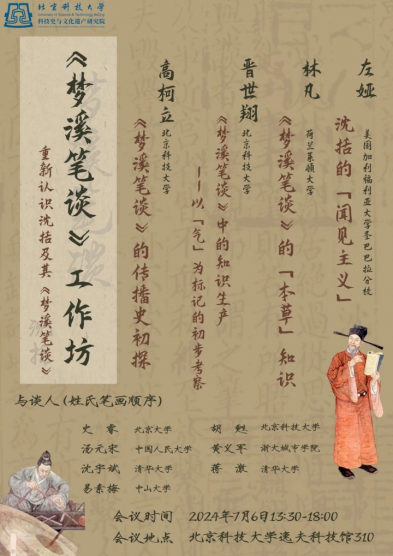 北京科技大学
University of Science and Technology Beijing
科技史与文化遗产研究院
左娅
美国加利福利亚大学圣巴巴拉分校
沈括的「闻见主义」
林凡
荷兰莱顿大学
《梦溪笔谈》的「本草」知识
晋世翔
北京科技大学
《梦溪笔谈》中的知识生产
——以「气」为标记的初步考察
高柯立
北京科技大学
《梦溪笔谈》的传播史初探
《梦溪笔谈》工作坊
重新认识沈括及其《梦溪笔谈》
与谈人(姓氏笔画顺序)
史睿 北京大学
汤元宋 中国人民大学
沈宇斌 清华大学
易素梅 中山大学
胡 北京科技大学
黄义军 浙大城市学院
蒋澈 清华大学
会议时间 2024年7月6日13:30-18:00
会议地点 北京科技大学逸夫科技馆310